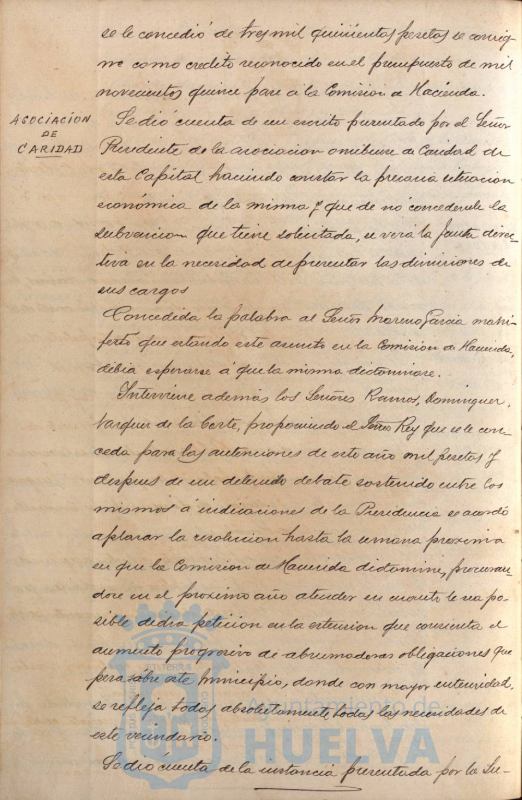 se le concedió de tres mil quinientas pesetas se consig-
ne como credito reconocido en el presupuesto de mil
novecientos quince pase á la Comision de Hacienda.
ASOCIACION
DE
CARIDAD
Se dió cuenta de un escrito presentado por el Señor
Presidente de la asociacion onubense de Caridad de
esta Capital haciendo constar la precaria situacion
económica de la misma y que de no concedersele la
subvencion que tiene solicitada, se verá la Junta direc-
tiva en la necesidad de presentar las dimisiones de
sus cargos
Concedida la palabra al Señor Moreno Garcia mani-
festó que estando este asunto en la Comision de Hacienda,
debia esperarse á que la misma dictaminase.
Interviene además los Señores Ramos, Dominguez,
Vazquez de la Corte, proponiendo el Señor Rey que se le con-
ceda para las atenciones de este año mil pesetas y
despues de un detenido debate sostenido entre los
mismos á indicaciones de la Presidencia se acordó
aplazar la resolucion hasta la semana proxima
en que la Comision de Hacienda dictamine, procuran-
dose en el proximo año atender en cuanto le sea po-
sible dicha peticion en la extension que consienta el
aumento progresivo de abrumadoras obligaciones que
pesa sobre este Municipio, donde con mayor intensidad
se refleja todas absolutamente todas las necesidades de
este vecindario.
Se dió cuenta de la instancia presentada por la Su-
Ayuntamiento de
HUELVA